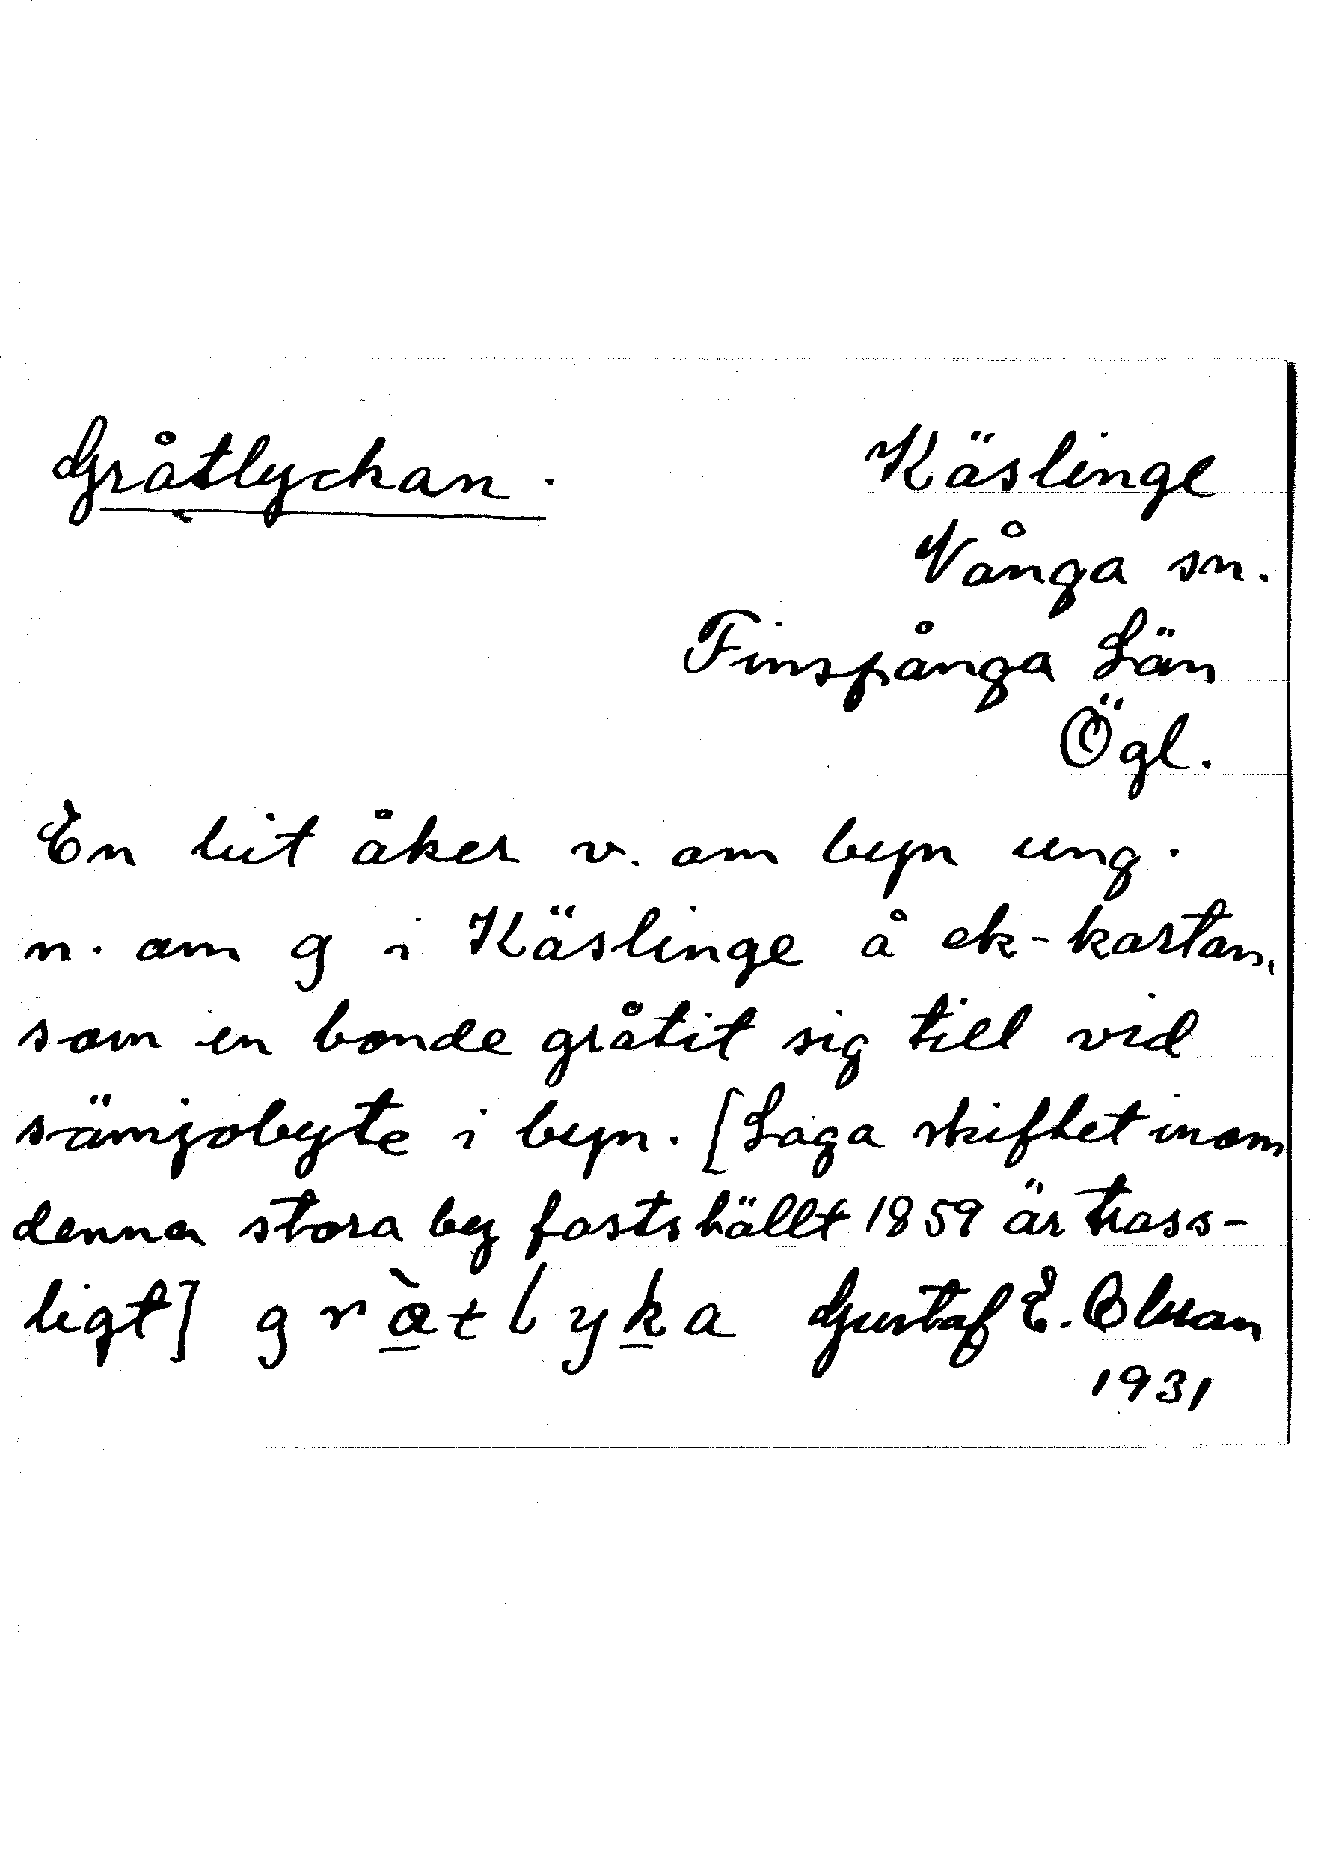 Gråtlyckan.
Käslinge
Vånga sn.
Finspånga Län
Ögl.
En bit åker v. om byn ung.
n. om g i Käslinge å ek-kartan,
som en bonde gråtit sig till vid
sämjobyte i byn. [Laga skiftet inom
denna stora by fastställt 1859 är trass-
ligt] gràtlyka Gustaf E. Olsson
1931